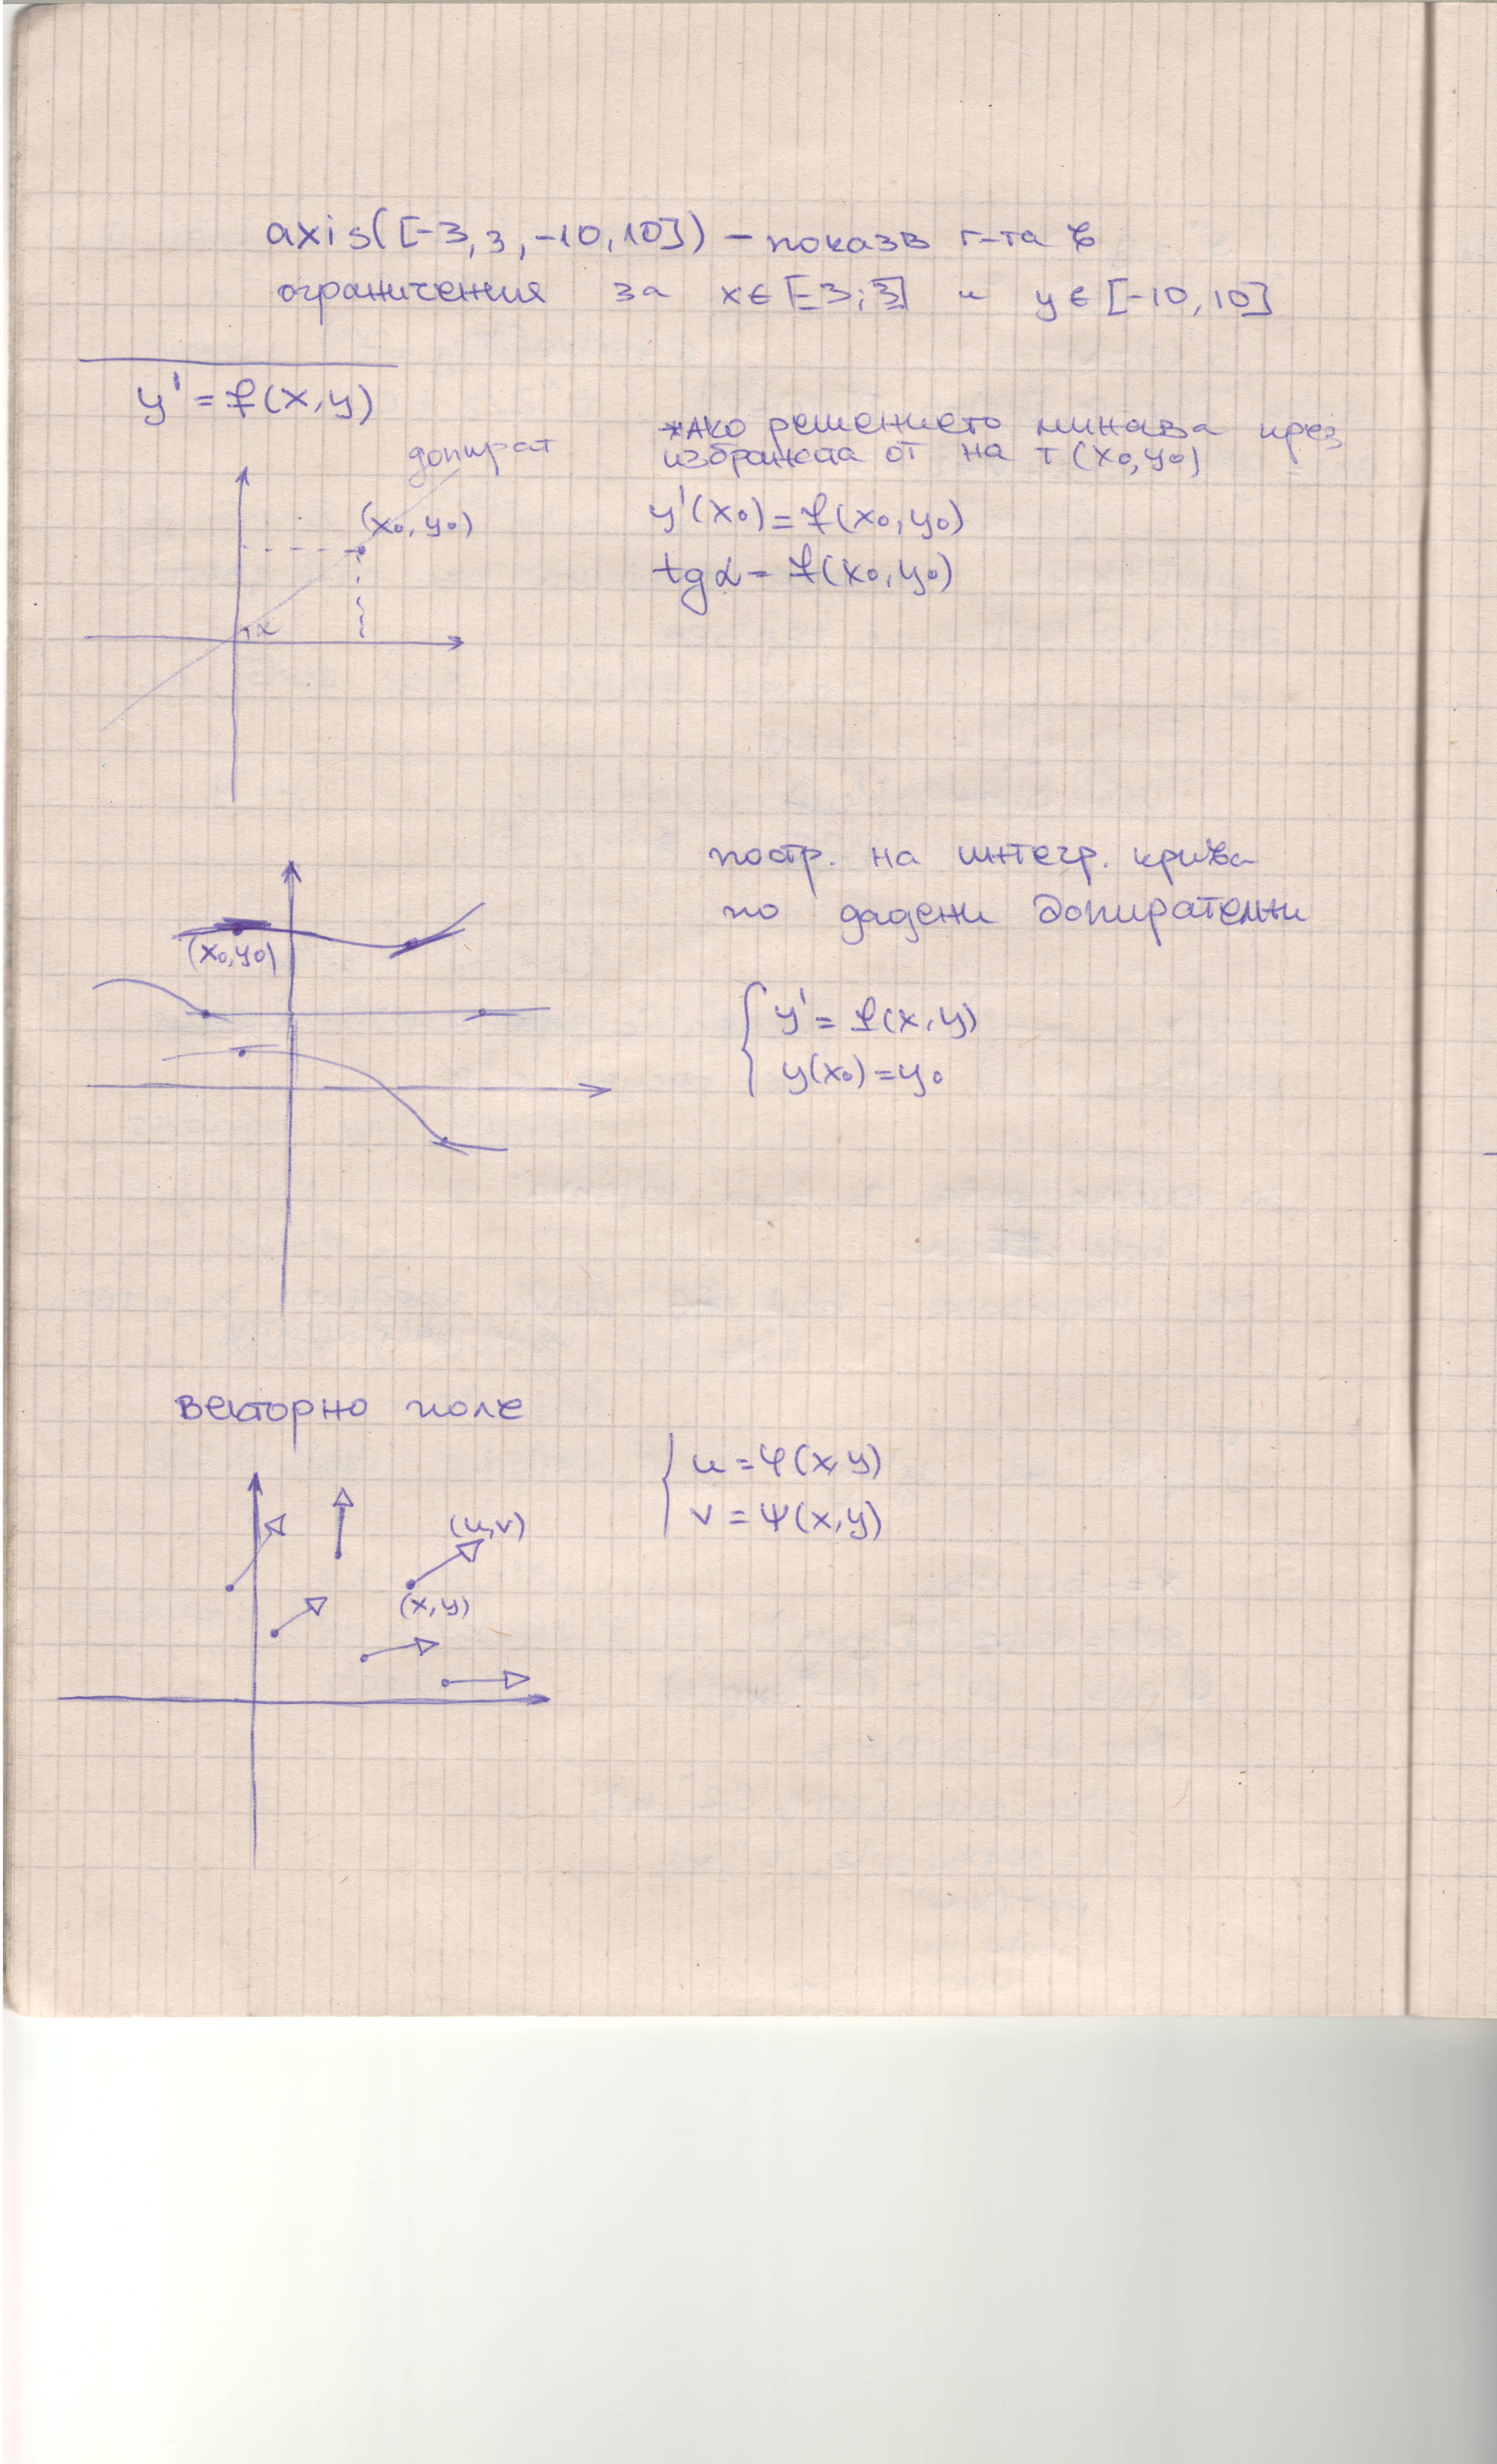 axis([-3,3,-10,10]) – показв г-та в
ограничения за x∈[-3;3] и y∈[-10,10]
y' = f(x,y)
допират
(x₀,y₀)
α
*Ако решението минава през
избраната от на т (x₀,y₀)
y'(x₀) = f(x₀,y₀)
tg α = f(x₀,y₀)
постр. на интегр. крива
по дадени допирателни
(x₀,y₀)
{ y' = f(x,y)
y(x₀) = y₀
векторно поле
(u,v)
(x,y)
{ u = φ(x,y)
v = ψ(x,y)